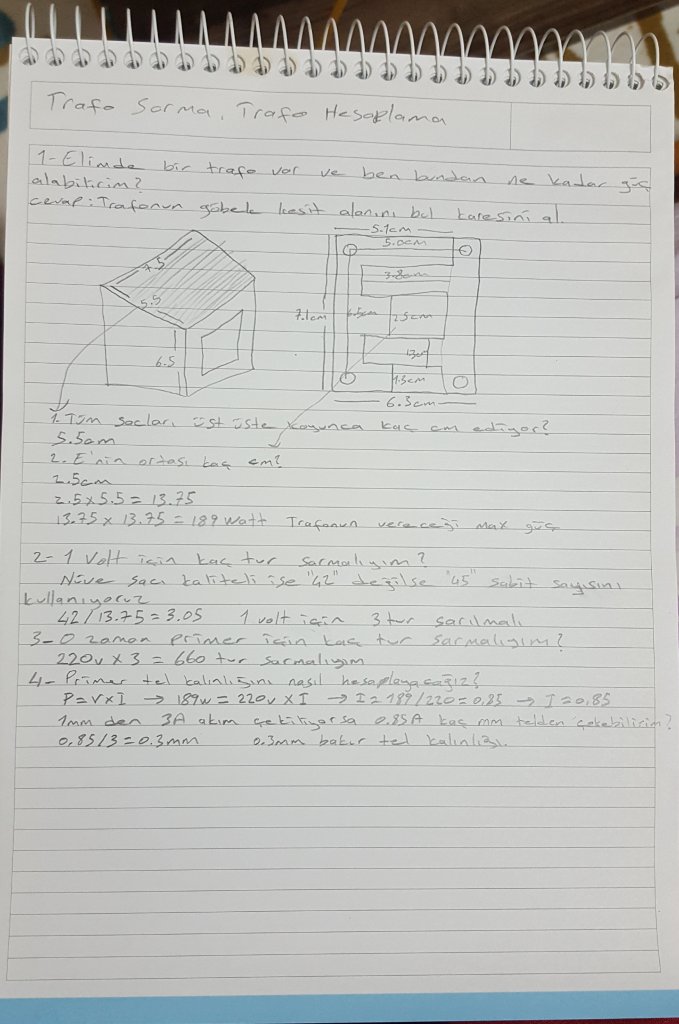 Trafo Sarma, Trafo Hesaplama
1- Elimde bir trafo var ve ben bundan ne kadar güç
alabilirim?
cevap: Trafonun göbek kesit alanını bul karesini al.
5.1cm
5.0cm
3.8cm
7.5
5.5
6.5
7.1cm
6.5cm
2.5cm
1.3cm
6.3cm
1. Tüm sacları üst üste koyunca kaç cm ediyor?
5.5cm
2. E'nin ortası kaç cm?
2.5cm
2.5 x 5.5 = 13.75
13.75 x 13.75 = 189 Watt Trafonun vereceği max güç
2- 1 Volt için kaç tur sarmalıyım?
Nüve sacı kaliteli ise "42" değilse "45" sabit sayısını
kullanıyoruz
42/13.75 = 3.05 1 volt için 3 tur sarılmalı
3- O zaman primer için kaç tur sarmalıyım?
220v x 3 = 660 tur sarmalıyım
4- Primer tel kalınlığını nasıl hesaplayacağız?
P=VxI → 189w = 220v x I → I = 189/220 = 0,85 → I = 0,85
1mm den 3A akım çekiliyorsa 0.85A kaç mm telden çekebilirim?
0,85/3 = 0.3mm 0.3mm bakır tel kalınlığı.